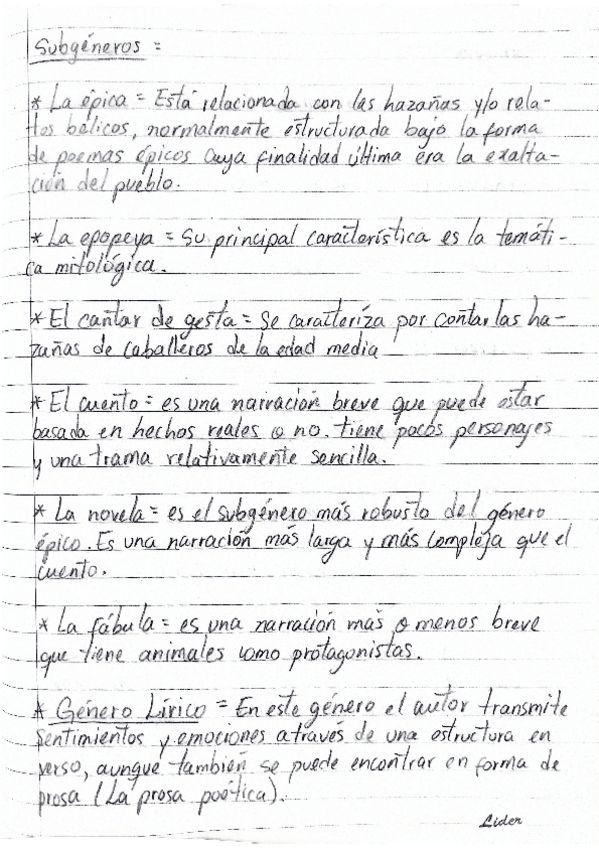 Subgéneros =
* La épica = Está relacionada con las hazañas y/o rela-
tos bélicos, normalmente estructurada bajo la forma
de poemas épicos cuya finalidad última era la exalta-
ción del pueblo.
* La epopeya = Su principal característica es la temáti-
ca mitológica.
* El cantar de gesta = Se caracteriza por contar las ha-
zañas de caballeros de la edad media
* El cuento = es una narración breve que puede estar
basada en hechos reales o no. tiene pocos personajes
y una trama relativamente sencilla.
* La novela = es el subgénero más robusto del género
épico. Es una narración más larga y más compleja que el
cuento.
* La fábula = es una narración más o menos breve
que tiene animales como protagonistas.
* Género Lírico = En este género el autor transmite
sentimientos y emociones através de una estructura en
verso, aunque también se puede encontrar en forma de
prosa (La prosa poética).
Lider